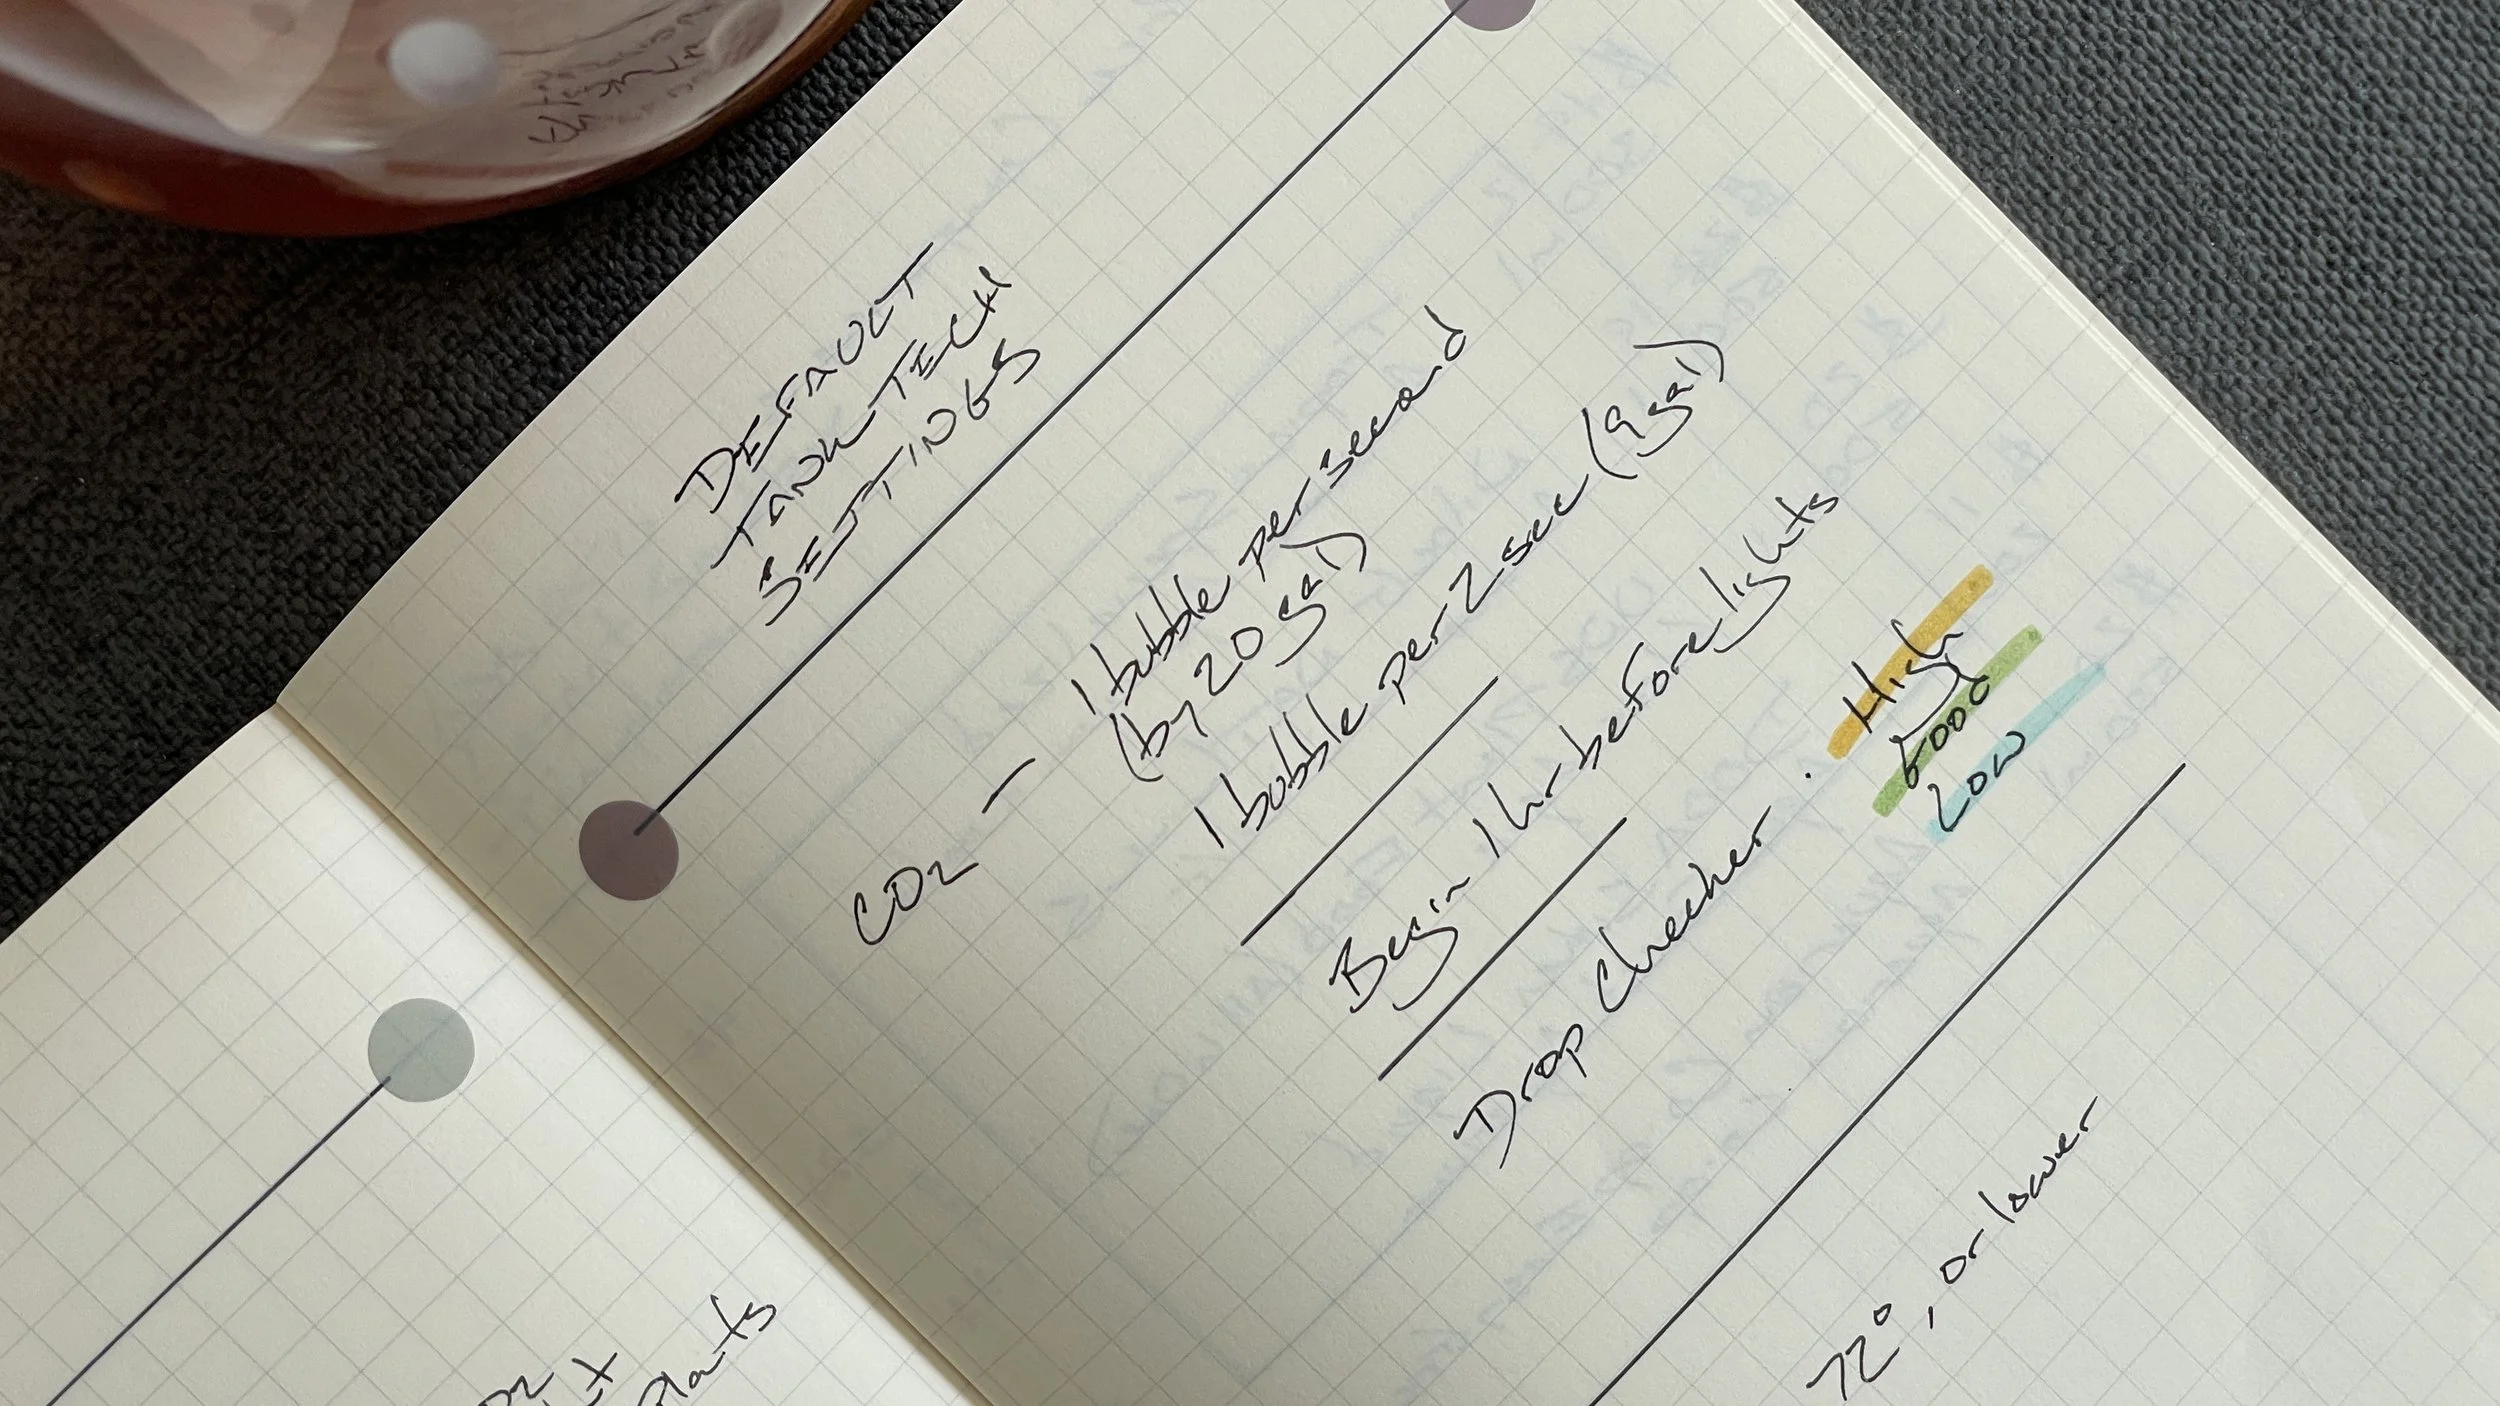 DEFAULT
TANK TECH
SETTINGS
CO2 — 1 bubble per second
(by 20 gal)
1 bubble per 2 sec (9 gal)
Begin 1 hr before lights
Drop checker: High
Good
Low
72°, or lower
Plants